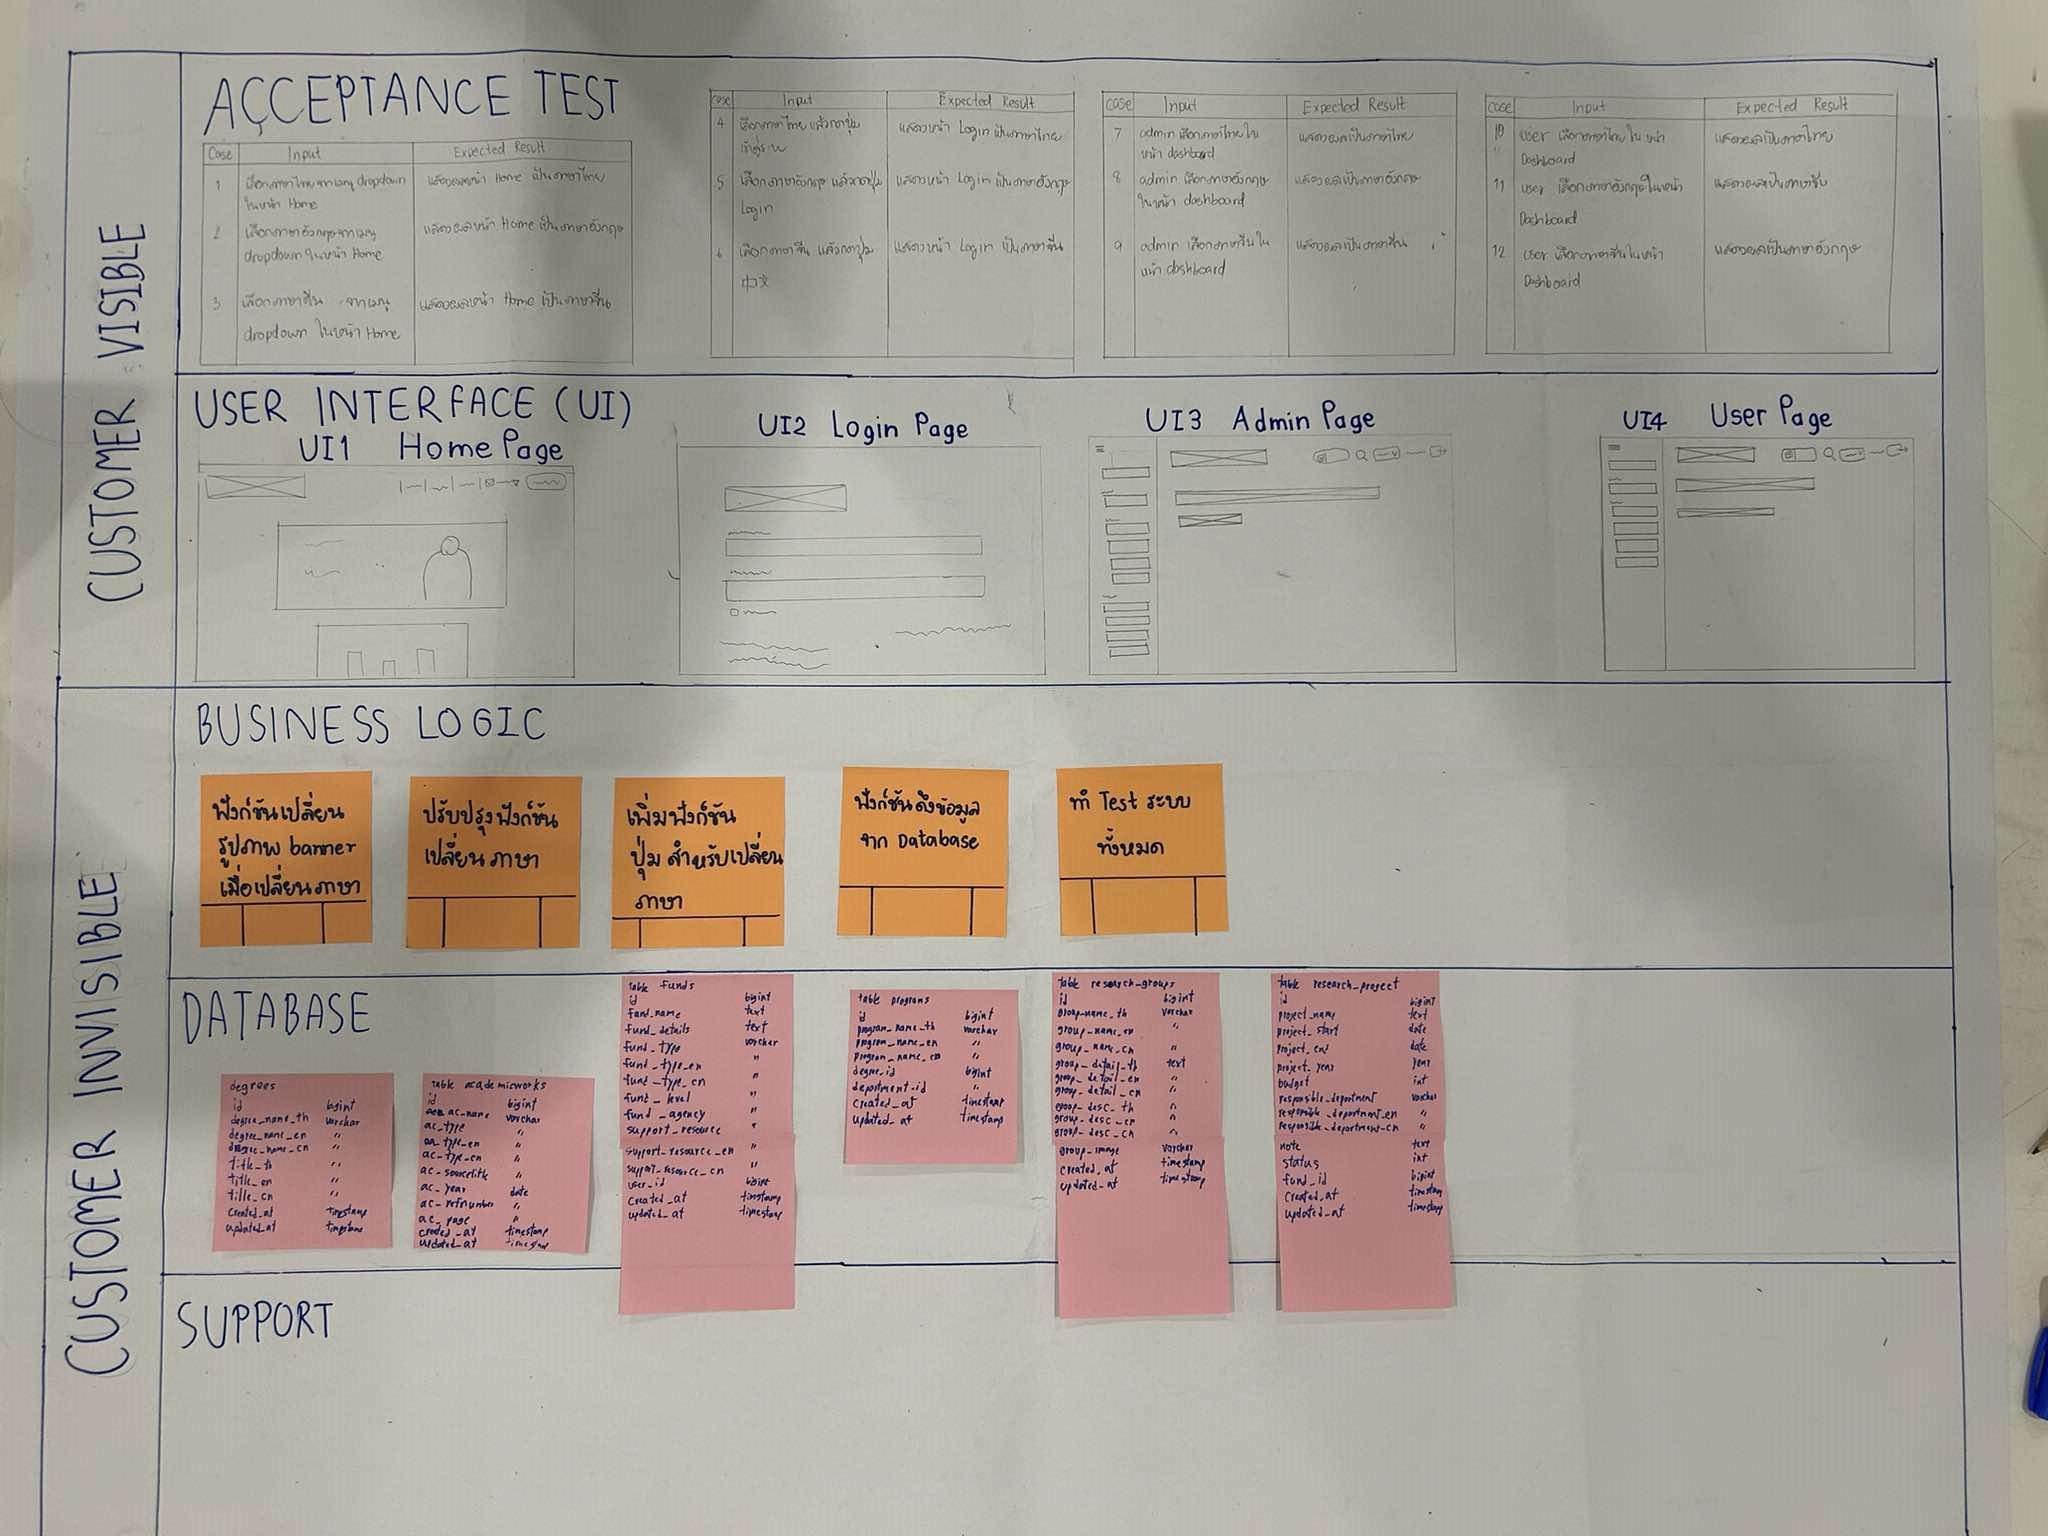 CUSTOMER VISIBLE
ACCEPTANCE TEST
Case Input Expected Result
1 เลือกภาษาไทยจากเมนู dropdown แสดงผลหน้า Home เป็นภาษาไทย
ในหน้า Home
2 เลือกภาษาอังกฤษจากเมนู แสดงผลหน้า Home เป็นภาษาอังกฤษ
dropdown ในหน้า Home
3 เลือกภาษาจีน จากเมนู แสดงผลหน้า Home เป็นภาษาจีน
dropdown ในหน้า Home
Case Input Expected Result
4 เลือกภาษาไทย แล้วกดปุ่ม แสดงหน้า Login เป็นภาษาไทย
เข้าสู่ระบบ
5 เลือกภาษาอังกฤษ แล้วกดปุ่ม แสดงหน้า Login เป็นภาษาอังกฤษ
Login
6 เลือกภาษาจีน แล้วกดปุ่ม แสดงหน้า Login เป็นภาษาจีน
中文
Case Input Expected Result
7 admin เลือกภาษาไทยใน แสดงผลเป็นภาษาไทย
หน้า dashboard
8 admin เลือกภาษาอังกฤษ แสดงผลเป็นภาษาอังกฤษ
ในหน้า dashboard
9 admin เลือกภาษาจีนใน แสดงผลเป็นภาษาจีน
หน้า dashboard
Case Input Expected Result
10 user เลือกภาษาไทย ใน หน้า แสดงผลเป็นภาษาไทย
Dashboard
11 user เลือกภาษาอังกฤษในหน้า แสดงผลเป็นภาษาจีน
Dashboard
12 user เลือกภาษาจีนในหน้า แสดงผลเป็นภาษาอังกฤษ
Dashboard
USER INTERFACE (UI)
UI1 Home Page
UI2 Login Page
UI3 Admin Page
UI4 User Page
CUSTOMER INVISIBLE
BUSINESS LOGIC
ฟังก์ชันเปลี่ยน
รูปภาพ banner
เมื่อเปลี่ยนภาษา
ปรับปรุงฟังก์ชัน
เปลี่ยนภาษา
เพิ่มฟังก์ชัน
ปุ่ม สำหรับเปลี่ยน
ภาษา
ฟังก์ชันดึงข้อมูล
จาก Database
ทำ Test ระบบ
ทั้งหมด
DATABASE
degrees
id bigint
degree_name_th varchar
degree_name_en "
degree_name_cn "
title_th "
title_en "
title_cn "
created_at timestamp
updated_at timestamp
table academicworks
id bigint
ac_name varchar
ac_type "
ac_type_en "
ac_type_cn "
ac_sourcetitle "
ac_year date
ac_refnumber "
ac_page "
created_at timestamp
updated_at timestamp
table funds
id bigint
fund_name text
fund_details text
fund_type varchar
fund_type_en "
fund_type_cn "
fund_level "
fund_agency "
support_resource "
support_resource_en "
support_resource_cn "
user_id bigint
created_at timestamp
updated_at timestamp
table programs
id bigint
program_name_th varchar
program_name_en "
program_name_cn "
degree_id bigint
department_id "
created_at timestamp
updated_at timestamp
table research_groups
id bigint
group_name_th varchar
group_name_en "
group_name_cn "
group_detail_th text
group_detail_en "
group_detail_cn "
group_desc_th "
group_desc_en "
group_desc_cn "
group_image varchar
created_at timestamp
updated_at timestamp
table research_project
id bigint
project_name text
project_start date
project_end date
project_year year
budget int
responsible_department varchar
responsible_department_en "
responsible_department_cn "
note text
status int
fund_id bigint
created_at timestamp
updated_at timestamp
SUPPORT